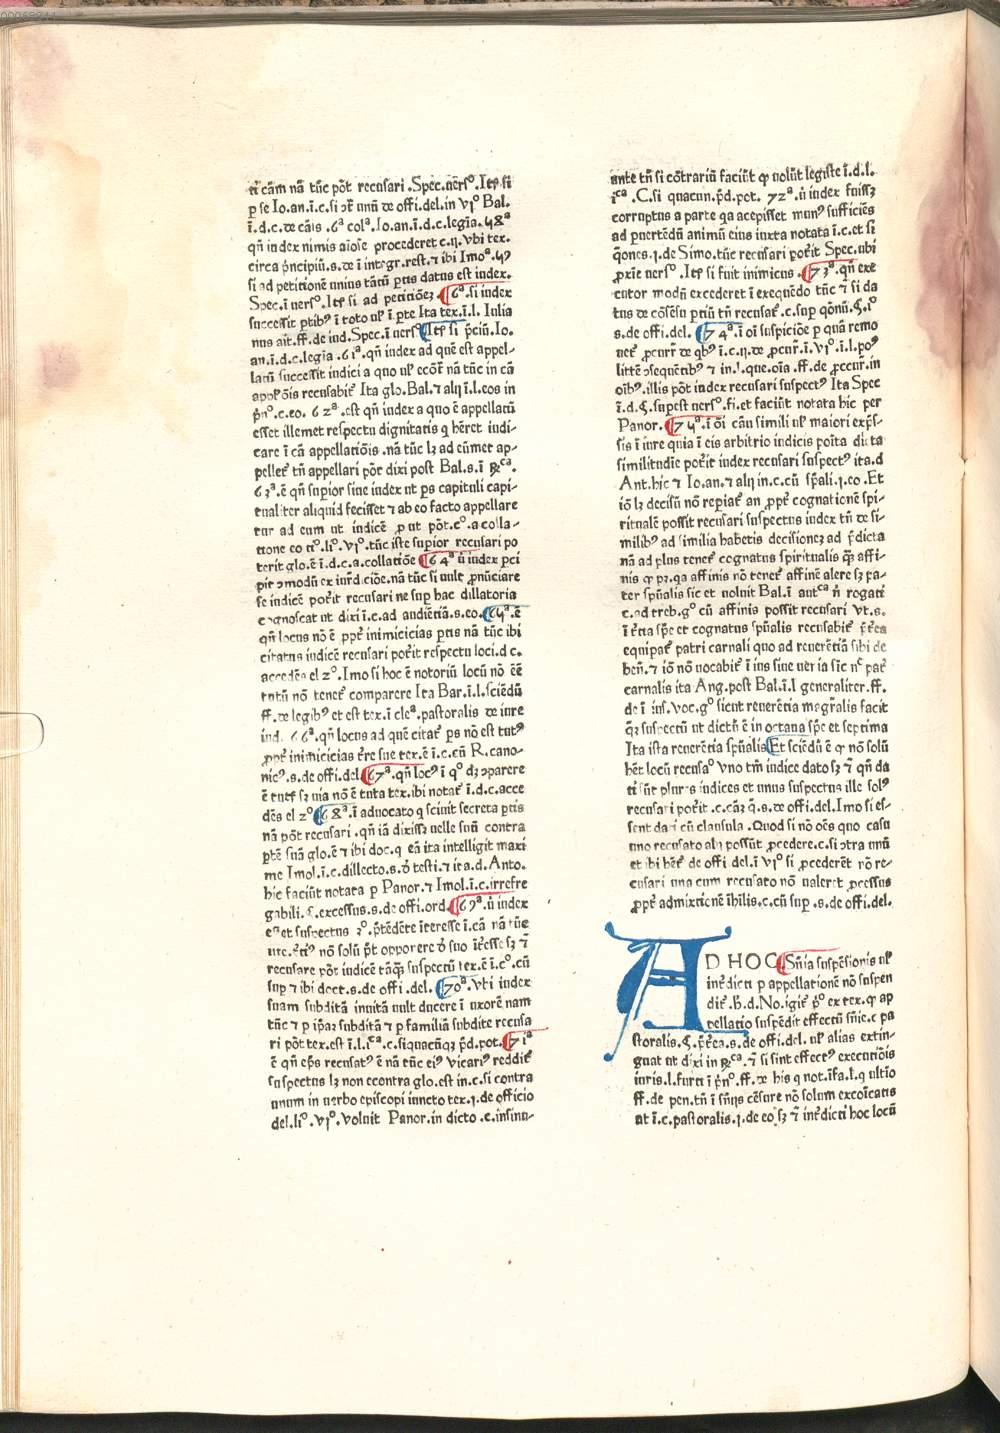 ti cãm nã tũc põt recusari .Spec.uersº.Itẽ si
p se Io.an.ĩ.c.si ɔ̃t unũ de offi.del.in vjº Bal.
ĩ.d.c.de cãis .6ª colª.Io.an.ĩ.d.c.legĩa.58ª
qñ index nimis aiose procederet c.ij.Vbi tex.
circa p̃ncipiũ.s.de ĩ intꝫgr.rest.⁊ ibi Imoª.59
si ad petitionẽ unius tãtũ ptis datus est index.
Spec.ĩ uersº.Itẽ si ad petitiõeꝫ .6ª.si index
successit ptibꝰ ĩ toto ul' ĩ pte Ita tex.ĩ.l. Iulia
nus ait.ff.de iud.Spec.ĩ uersº Itẽ si p̃ciũ.Io.
an.ĩ.d.c.legĩa .61ª.qñ index ad quẽ est appel-
latũ successit iudici a quo ul' eccõt̃ nã tũc in cã
appl'õis recusabit̃ Ita glo.Bal.⁊ alij ĩ.l.eos in
p̃nº.c.eo. 62ª.est qñ index a quo ẽ appellatũ
esset illemet respectu dignitatis q h̃eret iudi-
care ĩ cã appellatiõis .nã tũc lꝫ ad eũmet ap-
pellet̃ tñ appellari põt dixi post Bal.s.ĩ ꝶcª.
63ª.ẽ qñ supior siue index ut ps capituli capi-
tualiter aliquid fecisset ⁊ ab eo facto appellare
tur ad eum ut indicẽ ꝓut põt.cº.a colla-
tione eo tiº.liº.vjº.tũc iste supior recusari po
terit glo.ẽ ĩ.d.c.a.collatiõe 64ª ũ index pci
pit ɔmodũ ex iurdiciõe.nã tũc si uult ꝓnũciare
se indicẽ pot̃it recusari ne sup hac dillatoria
cognoscat ut dixi ĩ.c.ad audiẽtiã.s.eo. 65ª.ẽ
qñ locus nõ ẽ ppt̃ inimicicias ptis nã tũc ibi
citatus indicẽ recusari pot̃it respectu loci.d c.
accedẽs el 2º.Imo si hoc ẽ notoriũ locũ nõ ẽẽ
tutũ nõ tenet̃ comparere Ita Bar.ĩ.l.sciẽdũ
ff.de legibꝰ et est tex.ĩ cleª.pastoralis de iure
iud. 66ª.qñ locus ad quẽ citat̃ ps nõ est tutꝰ
ppt̃ inimicicias t̃re sue tex.ẽ ĩ.c.cũ R.cano-
nicꝰ.s.de offi.del. 67ª.qñ locꝰ ĩ qº dꝫ ɔparere
ẽ tutꝰ sꝫ uia nõ ẽ tuta tex.ibi notat̃ ĩ.d.c.acce
dẽs el 2º 68ª.ĩ aduocato q sciuit secreta ptis
nã põt recusari .qñ iã dixissꝫ uelle suũ contra
ptẽ suã glo.ẽ ⁊ ibi doc.q eã ita intelligit maxi
me Imol.ĩ.c.dillecto.s.õ testi.⁊ ita.d.Anto.
hic faciũt notata p Panor.⁊ Imol.ĩ.c.irrefre
gabili.§.excessus.s.de offi.ord. 69ª.ũ index
eªet suspectus 3º.p̃tẽdẽte ĩteresse ĩ.cã nã tũc
iure.t̃tiꝰ nõ solũ p̃t opporere õ suo ĩt̃esse sꝫ ⁊
recusare põt indicẽ tãqꝫ suspectũ tex.ẽ ĩ.cº.cũ
sup ⁊ ibi doct.s.de offi.del. 70ª.Vti index
suam subditã inuitã uult ducere ĩ uxorẽ nam
tũc ⁊ p ip̃aꝫ subditã ⁊ p familiã subdite recusa
ri põt tex.est ĩ.l.iᶜª.c.siquacũqꝫ p̃d.pot. 71ª
ẽ qñ ep̃s recusatꝰ ẽ nã tũc eiꝰ vicariꝰ reddit̃
suspectus lꝫ non econtra glo.est in.c.si contra
unum in uerbo episcopi iuncto tex.j.de officio
del.liº.vjº.voluit Panor.in dicto .c.insinu-
ante tñ si cõtrariũ faciũt ꝙ uolũt legiste ĩ.d.l.
iᶜª .C.si quacun.p̃d.pot. 72ª.ũ index fuissꝫ
corruptus a parte qa acepisset munꝰ sufficiẽs
ad puertẽdũ animũ eius iuxta notata ĩ.c.et si
q̃ones.j.de Simo.tũc recusari pot̃it Spec.ubi
ꝓxie uersº .Itẽ si fuit inimicus . 73ª.qñ exe
cutor modũ excederet ĩ exequẽdo tũc ⁊ si da
tus de cõsẽsu ptiũ tñ recusat̃.c.sup q̃onũ.§.iº
s.de offi.del. 74ª.ĩ oĩ suspiciõe p quã remo
uet̃ ꝓcurt̃ de qbꝰ ĩ.c.ij.de ꝓcur̃.ĩ.vjº.ĩ.l.poꝰ
littẽ ɔsequẽtibꝰ ⁊ in.l.que.oĩa .ff.de ꝓccur̃.in
oĩbꝰ.illis põt index recusari suspectꝰ Ita Spec
ĩ.d.§.supest uersº.fi.et faciũt notata hic per
Panor. 75ª.ĩ oĩ cãu simili ul' maiori exp̃s-
sis ĩ iure quia ĩ eis arbitrio iudicis poĩta dicta
similitudĩe pot̃it index recusari suspectꝰ ita.d
Ant.hic ⁊ Io.an ⁊ alij in.c.cũ sp̃ali.j.eo .Et
iõ lꝫ decisũ nõ repiat̃ an ꝓpt̃ cognationẽ spi-
ritualẽ possit recusari suspectus index tñ de si-
milibꝰ ad similia habetis decisionez ad p̃dicta
nã ad plus tenet̃ cognatus spiritualis q̃ꝫ affi-
nis ꝙ pꝫ.qa affinis nõ tenet̃ affinẽ alere sꝫ pa-
ter spũalis sic et uoluit Bal.ĩ autᶜª ñ rogati
c.ad treb.gº cũ affinis possit recusari Vt.s.
ĩ t̃tia sp̃e et cognatus spũalis recusabit̃ p̃t̃ea
equipat̃ patri carnali quo ad reuerẽtiã sibi de
ben̄.⁊ iõ nõ uocabit̃ ĩ ius sine ueria sĩc nᶜ pat̃
carnalis ita Ang.post Bal.ĩ.l generaliter.ff.
de ĩ ius.voc.gº sicut reuerẽtia magr̃alis facit
q̃ꝫ suspectũ ut dictũ ẽ in octaua sp̃e et septima
Ita ista reuerẽtia spũalis Et sciẽdũ ẽ ꝙ nõ solũ
h̃et locũ recusaº Vno tm̃ indice dato sꝫ ⁊ qñ da
ti sũt plures indices et unus suspectus ille solꝰ
recusari pot̃it .c.cãꝫ q̃.s.de offi.del.Imo si es-
sent dati cũ clausula .Quod si nõ oẽs quo casu
uno recusato alij possũt ꝓcedere.c.si ɔtra unũ
et ibi h̃et̃ de offi del.ĩ vjº si ꝓcederẽt nõ re-
cusari una cum recusato nõ ualeret ꝓcessus
ppt̃ admixtionẽ ĩhĩlis.c.cũ sup .s.de offi.del.
AD HOC Sñia suspẽsionis ul'
inṫdicti p appellationẽ nõ suspen
dit̃ .h.d.No.igit̃ pº ex tex.ꝙ ap
pellatio suspẽdit effectũ sñie.c pa
storalis.§.p̃t̃ea.s.de offi.del. ul' alias extin-
guat ut dixi in ꝶcª.⁊ si sint effectꝰ executiõis
iuris.l.furti ĩ p̃nº.ff.de his q not.ĩfa.l.q ultio
ff.de pen.tñ ĩ sñijs cẽsure nõ solum excoĩcatis
ut ĩ.c.pastoralis.j.de eo sꝫ ⁊ inṫdicti hoc locũ